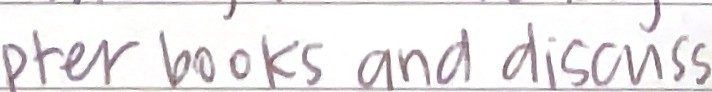 pter books and discuss